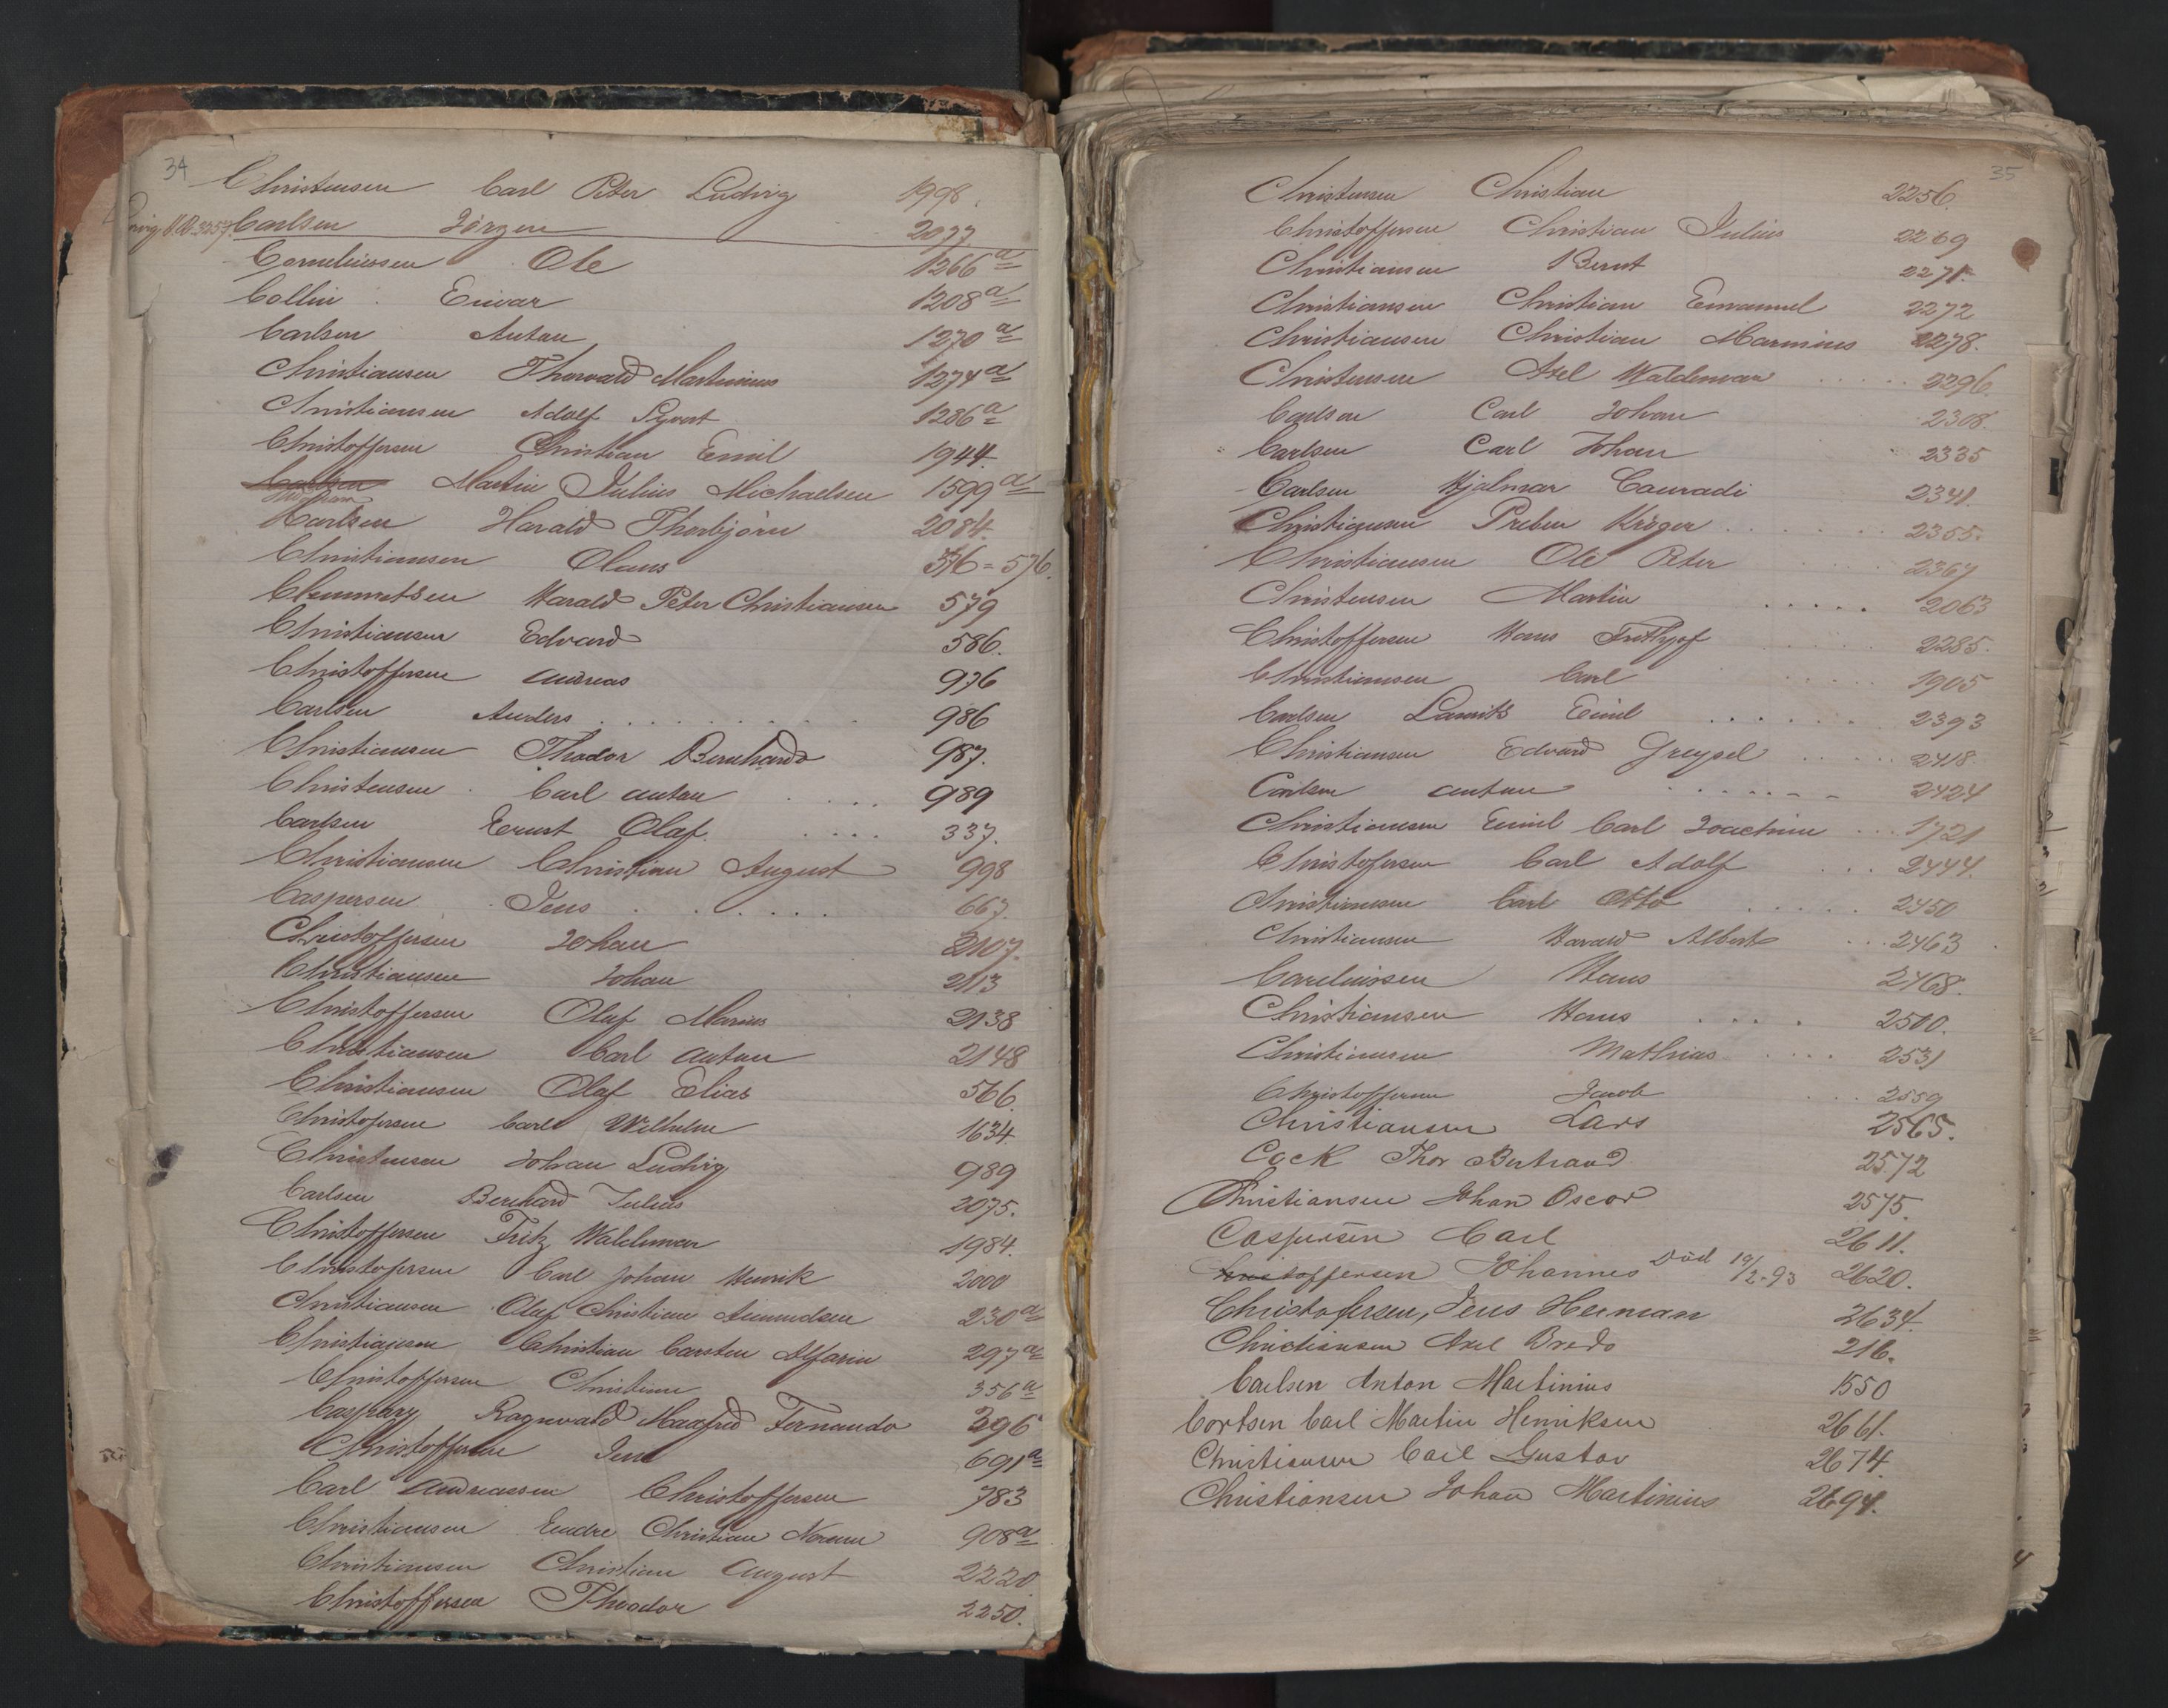 34
Christensen Carl Peter Ludvig 1998.
Carlsen Jörgen 2077
Corneliussen Ole 1266 a
Collin Einar 1208 a
Carlsen Anton 1270 a
Christiansen Thorvald Martinius 1274 a
Christiansen Adolf Syvert 1286 a
Christoffersen Christian Emil 1944.
Martin Julius Michaelsen 1599 a
Carlsen Harald Thorbjörn 2084.
Christiansen Olaus 376 = 576.
Clemmetsen Harald Peter Christiansen 579
Christiansen Edvard 586.
Christoffersen Andreas 976
Carlsen Anders 986
Christiansen Thodor Bernhard 987.
Christensen Carl Anton 989
Carlsen Ernst Olaf. 337.
Christiansen Christian August 998
Caspersen Jens 667.
Christoffersen Johan 2107.
Christiansen Johan 2113
Christoffersen Olaf Marius 2138
Christiansen Carl Anton 2148
Christiansen Olaf Elias 566
Christofersen Carl Wilhelm 1634
Christensen Johan Ludvig 989
Carlsen Bernhard Julius 2075.
Christoffersen Fritz Waldemar 1984.
Christofersen Carl Johan Henrik 2000
Christiansen Olaf Christian Amundsen 230 a
Christiansen Christian Carsten Alfarin 297 a
Christoffersen Christian 356 a
Caspary Ragnvald Manfred Fernando 396
Christoffersen Jens 691 a
Carl Andreassen Christoffersen 783
Christiansen Endre Christian Noreen 908 a
Christiansen Christian August 2220
Christoffersen Theodor 2250.
35
Christensen Christian 2256.
Christoffersen Christian Julius 2269
Christiansen Bernt 2271.
Christiansen Christian Emanuel 2272
Christiansen Christian Marinius 2278.
Christensen Axel Waldemar 2296.
Carlsen Carl Johan 2308.
Carlsen Carl Johan 2335
Carlsen Hjalmar Conradi 2341.
Christiansen Preben Kröger 2355.
Christiansen Ole Peter 2367
Christensen Martin 2063
Christoffersen Hans Frithjof 2285.
Christiansen Carl 1905
Carlsen Lauritz Emil 2393
Christiansen Edvard Greysel 2418.
Carlsen Anton 2424
Christiansen Emil Carl Joachim 1721
Christofersen Carl Adolf 2444.
Christiansen Carl Otto 2450
Christiansen Harald Albert 2463
Corneliussen Hans 2468.
Christiansen Hans 2500.
Christiansen Mathias 2531
Christoffersen Jacob 2559
Christiansen Lars 2565.
Cock Thor Bertrand 2572
Christiansen Johan Oscar 2575.
Caspersen Carl 2611.
Christoffersen Johannes Död 19/2-93 2620.
Christofersen, Jens Herman 2634.
Christiansen Axel Bredo 216.
Carlsen Anton Martinius 1550
Cortsen Carl Martin Henriksen 2661.
Christiansen Carl Gustav 2674.
Christiansen Johan Martinius 2694.